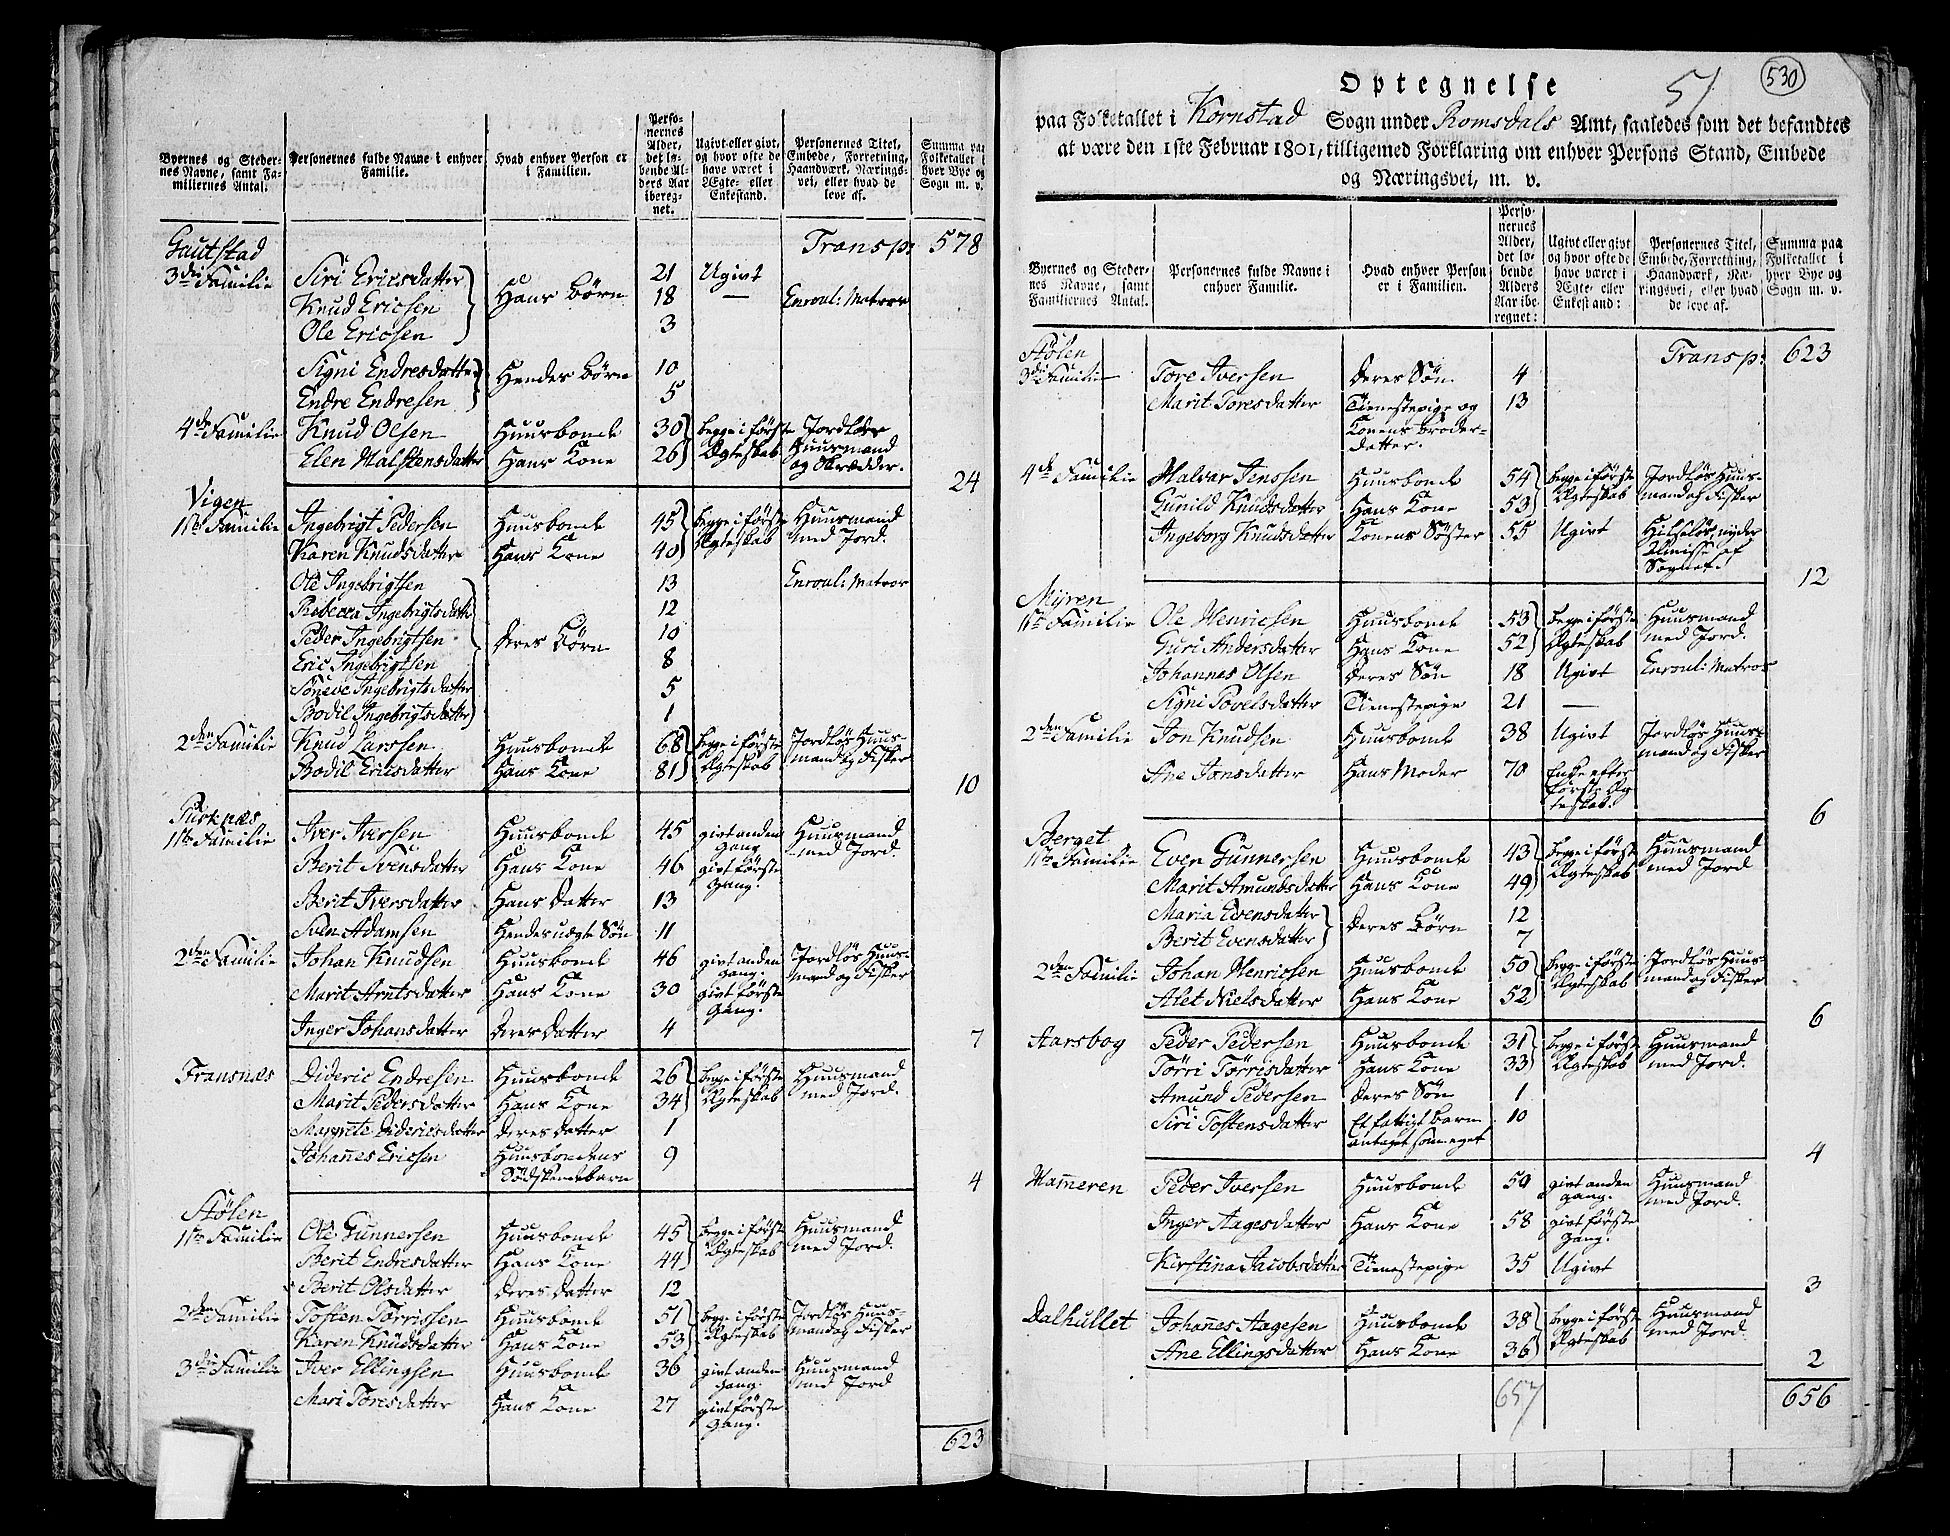 Byernes og Steder-
nes Navne, samt Fa-
miliernes Antal.
Personernes fulde Navne i enhver
Familie.
Hvad enhver Person er
i Familien.
Perso-
nernes
Alder,
det lø-
bende Al-
ders Aar
ibereg-
net.
Ugivt eller givt,
og hvor ofte de
have været i
Ægte- eller
Enkestand.
Personernes Titel,
Embede, Forretning,
Haandværk, Nærings-
vei, eller hvad de
leve af.
Summa paa
Folketallet i
hver Bye og
Sogn m. v.
Gautstad Transp: 578
3die Familie Siri Ericsdatter Hans Børn 21 Ugivt
Knud Ericsen 18 — Enroul: Matros
Ole Ericsen 3
Signi Endresdatter Hendes Børn 10
Endre Endresen 5
4de Familie Knud Olsen Huusbonde 30 begge i første Jordløs
Elen Halstensdatter Hans Kone 26 Ægteskab Huusmand
og Skrædder.
24
Vigen
1ste Familie Ingebrigt Pedersen Huusbonde 45 begge i første Huusmand
Karen Knudsdatter Hans Kone 40 Ægteskab med Jord.
Ole Ingebrigtsen 13 Enroul: Matros
Rebecca Ingebrigtsdatt: 12
Peder Ingebrigtsen Deres Børn 10
Eric Ingebrigtsen 8
Synneve Ingebrigtsdatter 5
Bodil Ingebrigtsdatter 1
2den Familie Knud Larssen Huusbonde 68 begge i første Jordløs Huus-
Bodil Ericsdatter Hans Kone 81 Ægteskab mand og Fisker
10
1ste Familie Iver Iversen Huusbonde 45 givt anden Huusmand
Gang med Jord.
Berit Svensdatter Hans Kone 46 givt første
Gang.
Berit Iversdatter Hans Datter 13
Sven Adamsen Hendes uægte Søn 11
2den Familie Johan Knudsen Huusbonde 46 givt anden Jordløs Huus-
Gang. mand og Fisker
Marit Arntsdatter Hans Kone 30 givt første
Gang.
Inger Johansdatter Deres Datter 4
7
Fransnæs Dideric Endresen Huusbonde 26 begge i første Huusmand
Marit Pedersdatter Hans Kone 34 Ægteskab med Jord.
Margrete Didericsdatter Deres Datter 1
Johannes Ericsen Huusbondens 9
Sødskendebarn
4
Stølen
1ste Familie Ole Gunnersen Huusbonde 45 begge i første Huusmand
Berit Endresdatter Hans Kone 44 Ægteskab med Jord.
Berit Olsdatter Deres Datter 12
2den Familie Tosten Torrissen Huusbonde 51 begge i første Jordløs Huus-
Karen Knudsdatter Hans Kone 53 Ægteskab mand og Fisker
3die Familie Iver Ellingsen Huusbonde 36 givt anden Huusmand
Gang. med Jord
Mari Toresdatter Hans Kone 27 givt første
Gang.
623
Optegnelse 51 530
paa Folketallet i Kornstad Sogn under Romsdals Amt, saaledes som det befandtes
at være den 1ste Februar 1801, tilligemed Forklaring om enhver Persons Stand, Embede
og Næringsvei, m. v.
Byernes og Steder-
nes Navne, samt
Familiernes Antal.
Personernes fulde Navne i
enhver Familie.
Hvad enhver Person
er i Familien.
Perso-
nernes
Alder,
det lø-
bende
Alders
Aar ibe-
regnet:
Ugivt eller givt
og hvor ofte de
have været i
Ægte- eller
Enkestand:
Personernes Titel,
Embede, Forretning,
Haandværk, Næ-
ringsvei, eller hvad
de leve af.
Summa paa
Folketallet i
hver Bye og
Sogn m. v.
Stølen Transp: 623
3die Familie Tore Iversen Deres Søn 4
Marit Toresdatter Tienestepige og 13
Konens Broder-
datter.
4de Familie Halvar Jenssen Huusbonde 54 begge i første Jordløs Huus-
Gunild Knudsdatter Hans Kone 53 Ægteskab mand og Fisker
Ingeborg Knudsdatter Konens Søster 55 Ugivt Hielpeløs, nyder
Almisse af
Sognet.
12
Myren
1ste Familie Ole Henricsen Huusbonde 53 begge i første Huusmand
Guri Andersdatter Hans Kone 52 Ægteskab med Jord.
Johannes Olsen Deres Søn 18 Ugivt Enroul: Matros
Signi Povelsdatter Tienestepige 21 —
2den Familie Jon Knudsen Huusbonde 38 Ugivt Jordløs Huus-
mand og Fisker
Ane Jonsdatter Hans Moder 70 Enke efter
første Æg-
teskab.
6
Berget
1ste Familie Even Gunnersen Huusbonde 43 begge i første Huusmand
Marit Amundsdatter Hans Kone 49 Ægteskab med Jord
Maria Evensdatter Deres Børn 12
Berit Evensdatter 7
2den Familie Johan Henricsen Huusbonde 50 begge i første Jordløs Huus-
Alet Nielsdatter Hans Kone 52 Ægteskab mand og Fisker
6
Aarsbog Peder Pedersen Huusbonde 31 begge i første Huusmand
Tørri Tørrisdatter Hans Kone 33 Ægteskab med Jord.
Amund Pedersen Deres Søn 1
Siri Tostensdatter Et fattigt Barn 10
antaget som eget
4
Hameren Peder Iversen Huusbonde 50 givt anden Huusmand
Gang. med Jord.
Inger Aagesdatter Hans Kone 58 givt første
Gang.
Kirstina Jacobsdatter Tienestepige 35 Ugivt
3
Dalhullet Johannes Aagesen Huusbonde 38 begge i første Huusmand
Ane Ellingsdatter Hans Kone 36 Ægteskab med Jord.
2
657 656